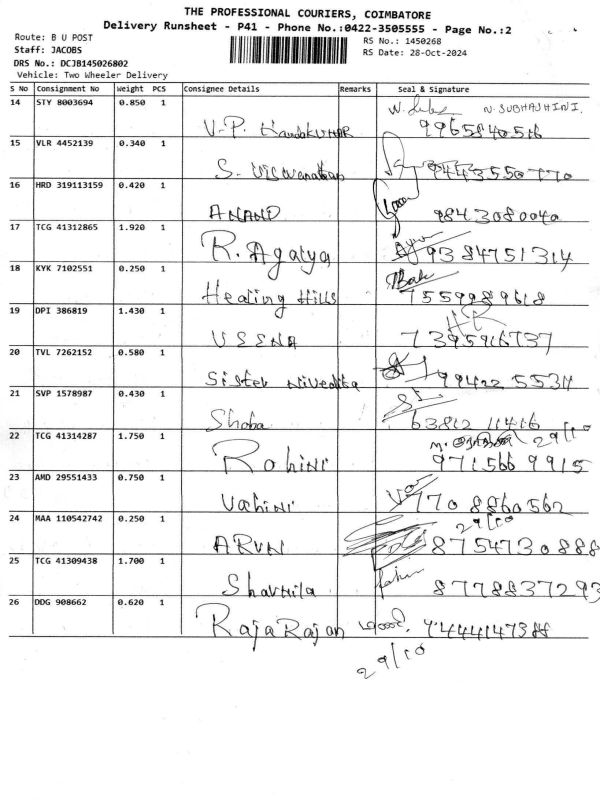 THE PROFESSIONAL COURIERS, COIMBATORE
Delivery Runsheet - P41 - Phone No.:0422-3505555 - Page No.:2
Route: B U POST
RS No.: 1450268
Staff: JACOBS
RS Date: 28-Oct-2024
DRS No.: DCJB145026802
Vehicle: Two Wheeler Delivery
S No Consignment No Weight PCS Consignee Details Remarks Seal & Signature
14 STY 8003694 0.850 1 N. SUBHASHINI.
V.P. Nandakumar 9965840516
15 VLR 4452139 0.340 1
S. Viswanathan 9443550770
16 HRD 319113159 0.420 1
ANAND 9843080040
17 TCG 41312865 1.920 1
R. Agalya 9384751314
18 KYK 7102551 0.250 1
Healing Hills 7559989618
19 DPI 386819 1.430 1
VEENA 7395916737
20 TVL 7262152 0.580 1
Sister Nivedita 99422 55311
21 SVP 1578987 0.430 1
Shoba 63812 11416
22 TCG 41314287 1.750 1 29/10
Rohini 971566 9915
23 AMD 29551433 0.750 1
Vahini 770 8860562
24 MAA 110542742 0.250 1 29/10
ARUN 8754730888
25 TCG 41309438 1.700 1
Sharmila 8778837293
26 DDG 908662 0.620 1
RajaRajan
29/10